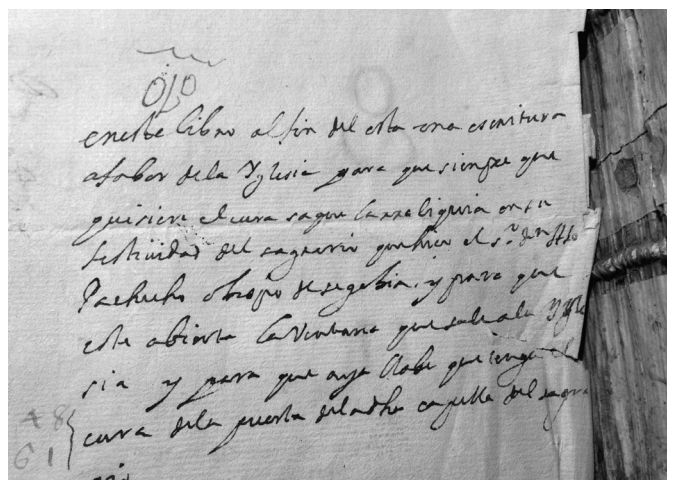 ojo
en este libro al fin del esta una escritura
a fabor de la Yglesia para que siempre que
quisiere el cura saque la rreliquia en su
festividad del sagrario que hiço el sr. don
Pachecho obispo de segobia. y para que
este abierta la ventana que sale a la Ygle
sia y para que aya llabe que tenga el
cura de la puerta de la dha capilla del sagra
rio
48
61